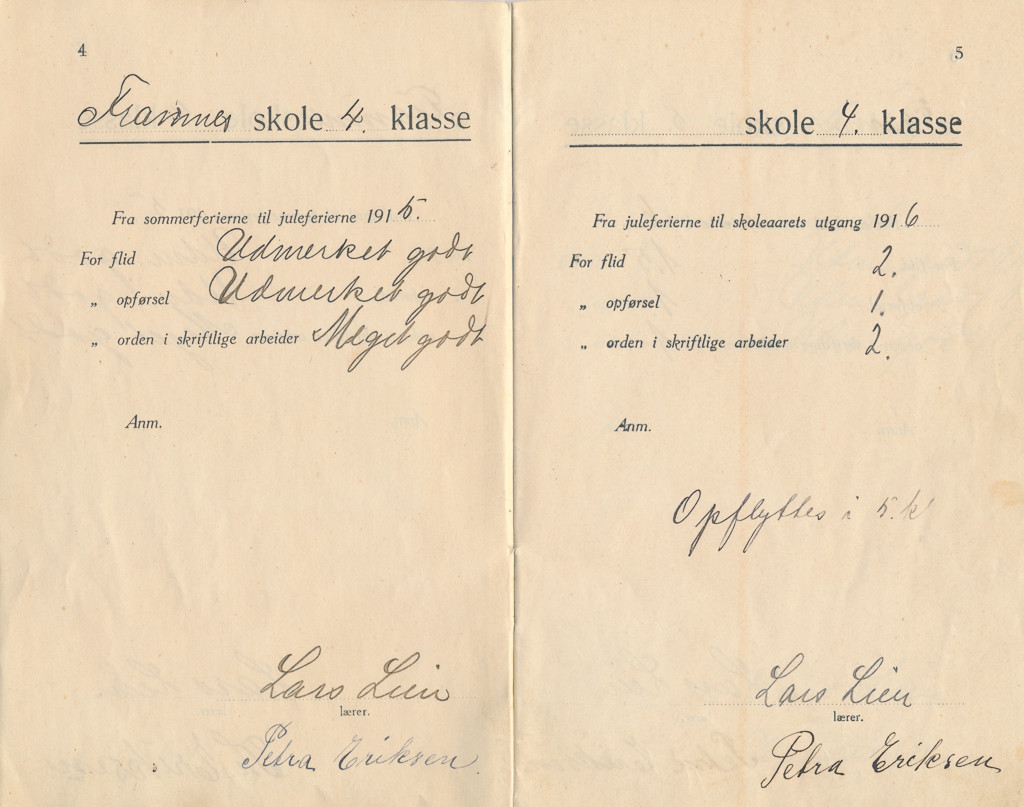 4
Framnes skole 4. klasse
Fra sommerferierne til juleferierne 1915.
For flid Udmerket godt
„ opførsel Udmerket godt
„ orden i skriftlige arbeider Meget godt
Anm.
Lars Lien
lærer.
Petra Eriksen.
5
skole 4. klasse
Fra juleferierne til skoleaarets utgang 1916
For flid 2.
„ opførsel 1.
„ orden i skriftlige arbeider 2.
Anm.
Opflyttes i 5. kl
Lars Lien
lærer.
Petra Eriksen